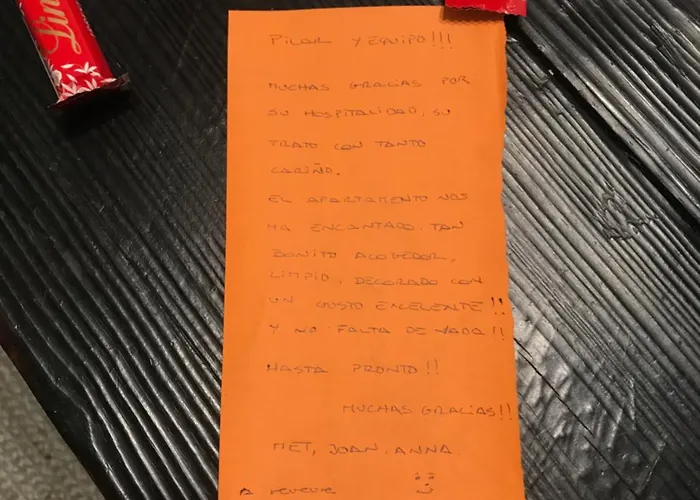 Lin
PILAR Y EQUIPO!!!
MUCHAS GRACIAS POR
SU HOSPITALIDAD, SU
TRATO CON TANTO
CARIÑO.
EL APARTAMENTO NOS
HA ENCANTADO. TAN
BONITO ACOGEDOR,
LIMPIO, DECORADO CON
UN GUSTO EXCELENTE!!
Y NO FALTA DE NADA!!
HASTA PRONTO!!
MUCHAS GRACIAS!!
MET, JOAN, ANNA
A REVEURE